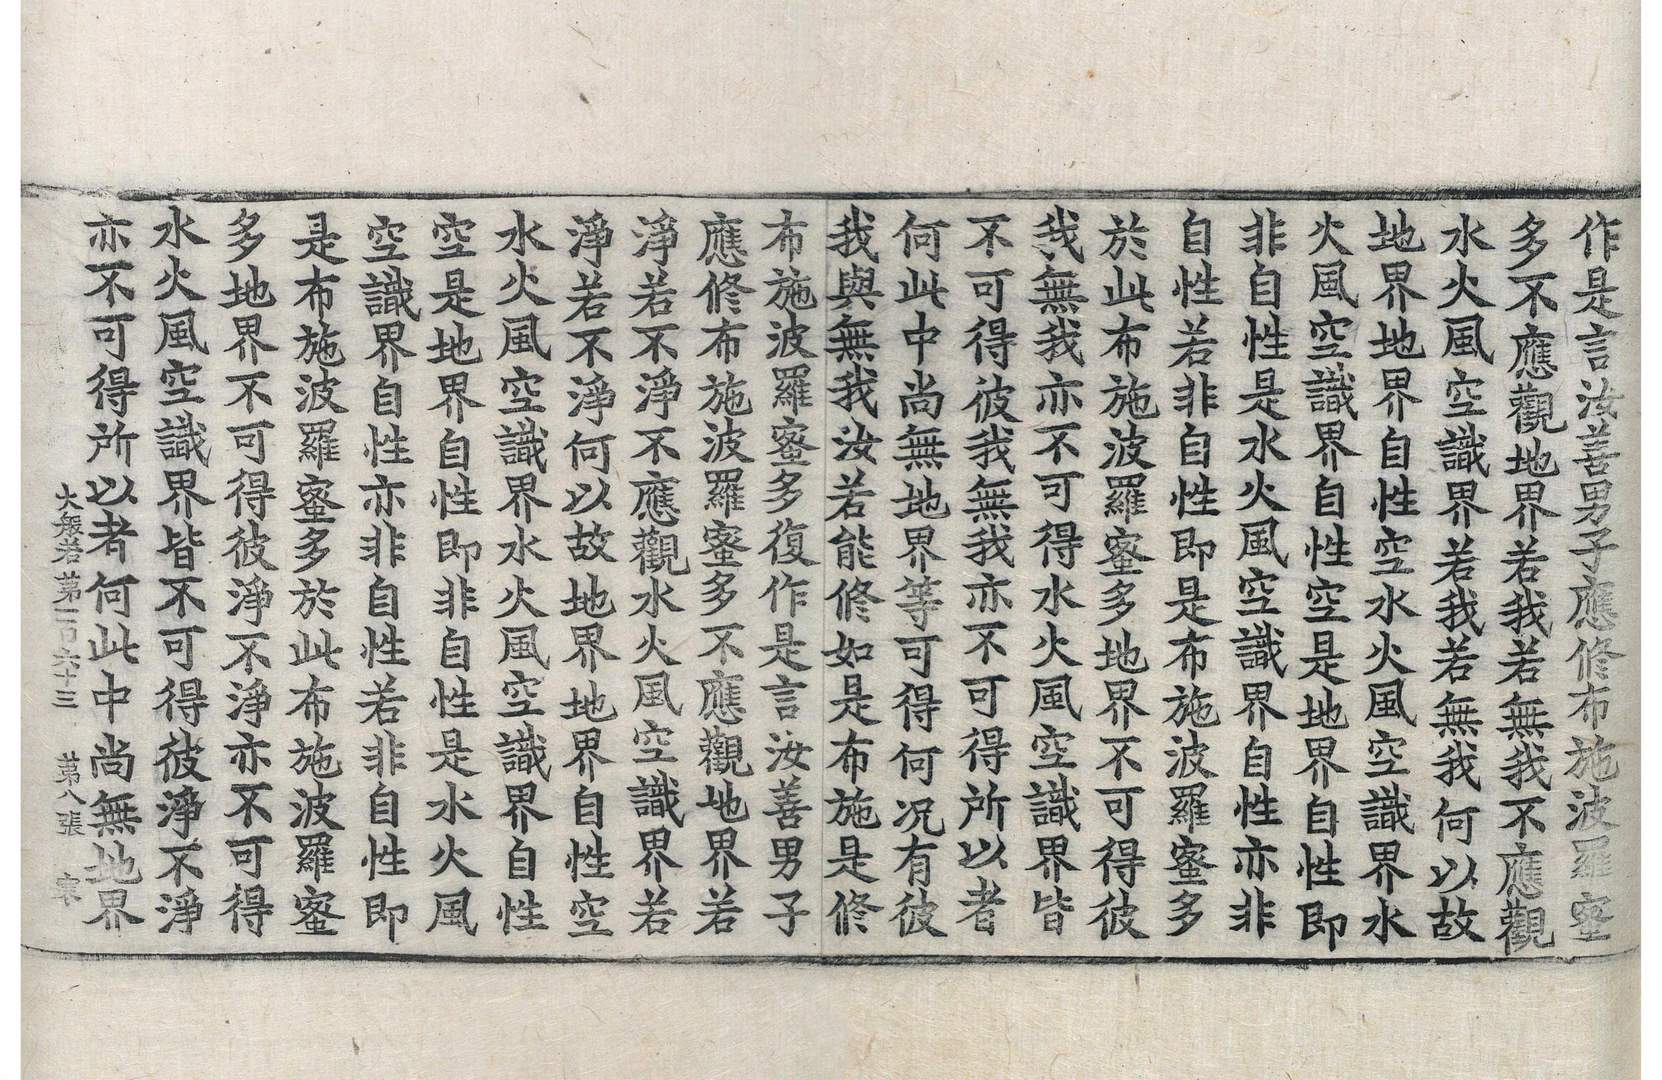 作是言汝善男子應修布施波羅蜜
多不應觀地界若我若無我不應觀
水火風空識界若我若無我何以故
地界地界自性空水火風空識界水
火風空識界自性空是地界自性即
非自性是水火風空識界自性亦非
自性若非自性即是布施波羅蜜多
於此布施波羅蜜多地界不可得彼
我無我亦不可得水火風空識界皆
不可得彼我無我亦不可得所以者
何此中尚無地界等可得何况有彼
我與無我汝若能修如是布施是修
布施波羅蜜多復作是言汝善男子
應修布施波羅蜜多不應觀地界若
淨若不淨不應觀水火風空識界若
淨若不淨何以故地界地界自性空
水火風空識界水火風空識界自性
空是地界自性即非自性是水火風
空識界自性亦非自性若非自性即
是布施波羅蜜多於此布施波羅蜜
多地界不可得彼淨不淨亦不可得
水火風空識界皆不可得彼淨不淨
亦不可得所以者何此中尚無地界
大般若第一百六十三 第八張